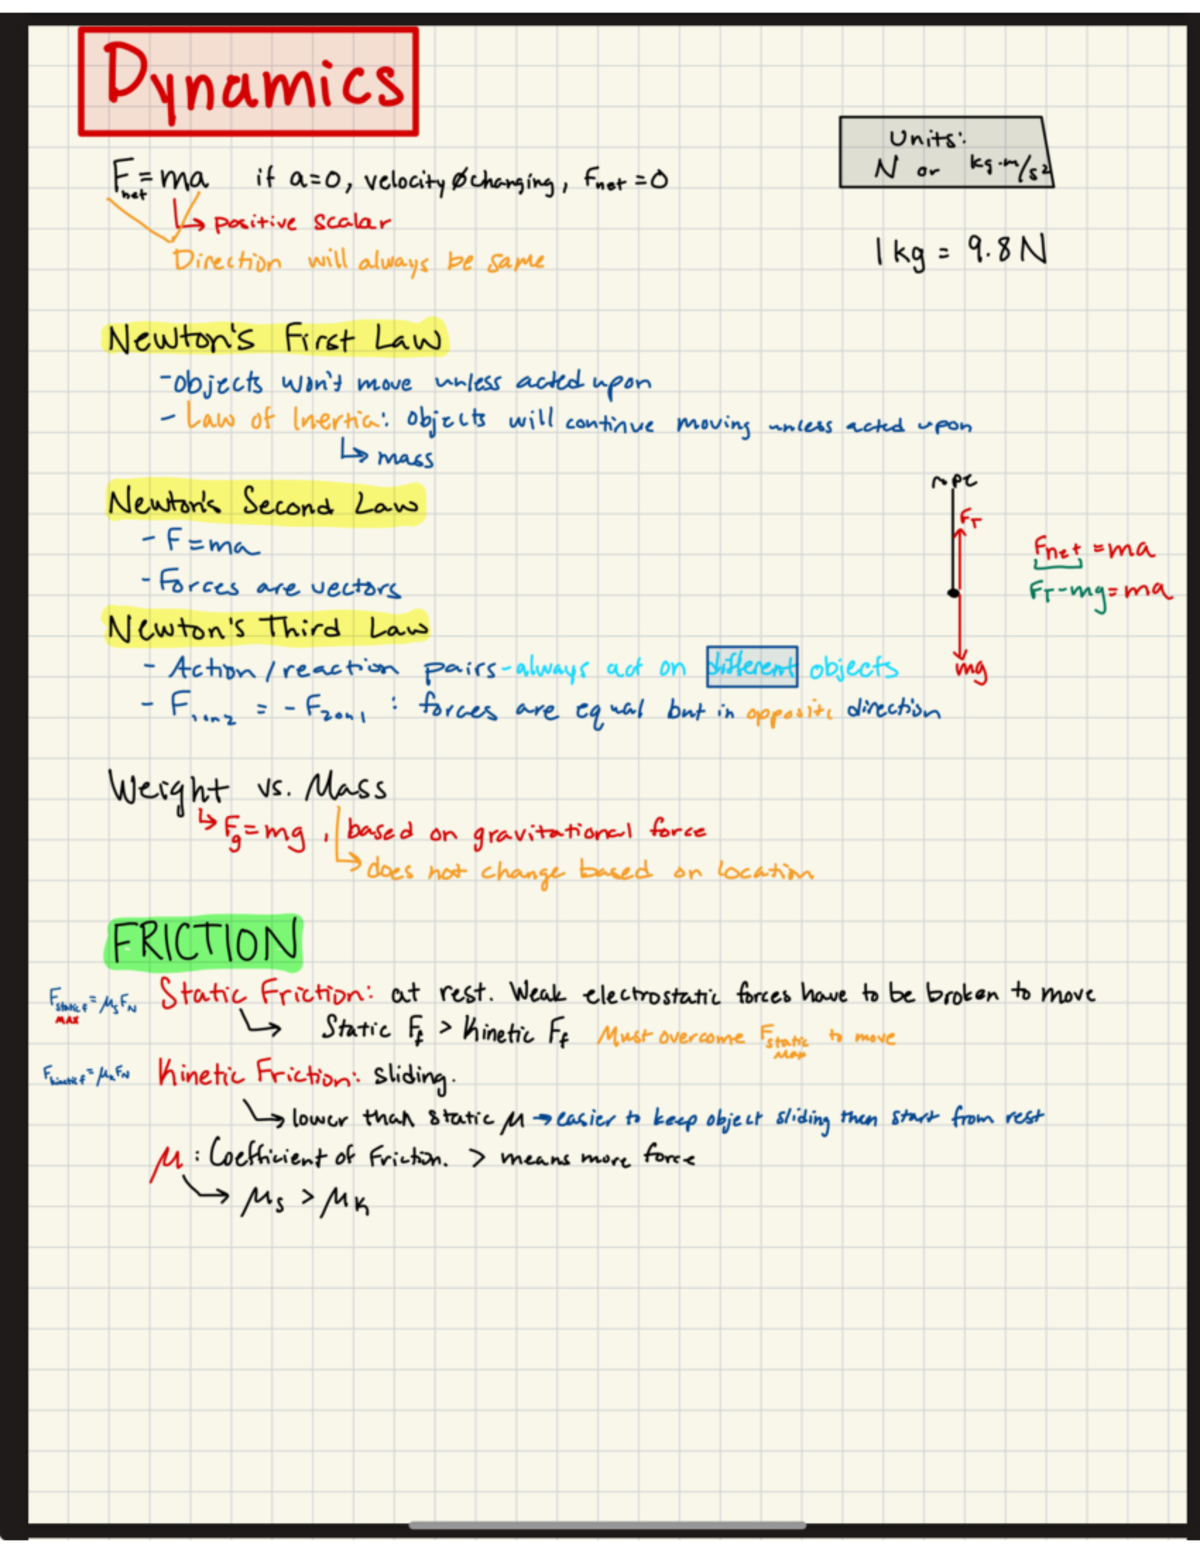 Dynamics
Units:
N or kg·m/s²
Fnet = ma if a=0, velocity Ø changing, Fnet = 0
↳ positive scalar
Direction will always be same
1 kg = 9.8 N
Newton's First Law
- objects won't move unless acted upon
- Law of Inertia: objects will continue moving unless acted upon
↳ mass
Newton's Second Law
- F = ma
- Forces are vectors
rope
FT
mg
Fnet = ma
FT - mg = ma
Newton's Third Law
- Action/reaction pairs - always act on different objects
- F1on2 = - F2on1 : forces are equal but in opposite direction
Weight vs. Mass
↳ Fg = mg, based on gravitational force
↳ does not change based on location
FRICTION
Fstatic f = μsFN
MAX
Static Friction: at rest. Weak electrostatic forces have to be broken to move
↳ Static Ff > Kinetic Ff Must overcome Fstatic max to move
Fkinetic f = μkFN
Kinetic Friction: sliding.
↳ lower than static μ → easier to keep object sliding then start from rest
μ : Coefficient of Friction. > means more force
↳ μs > μk